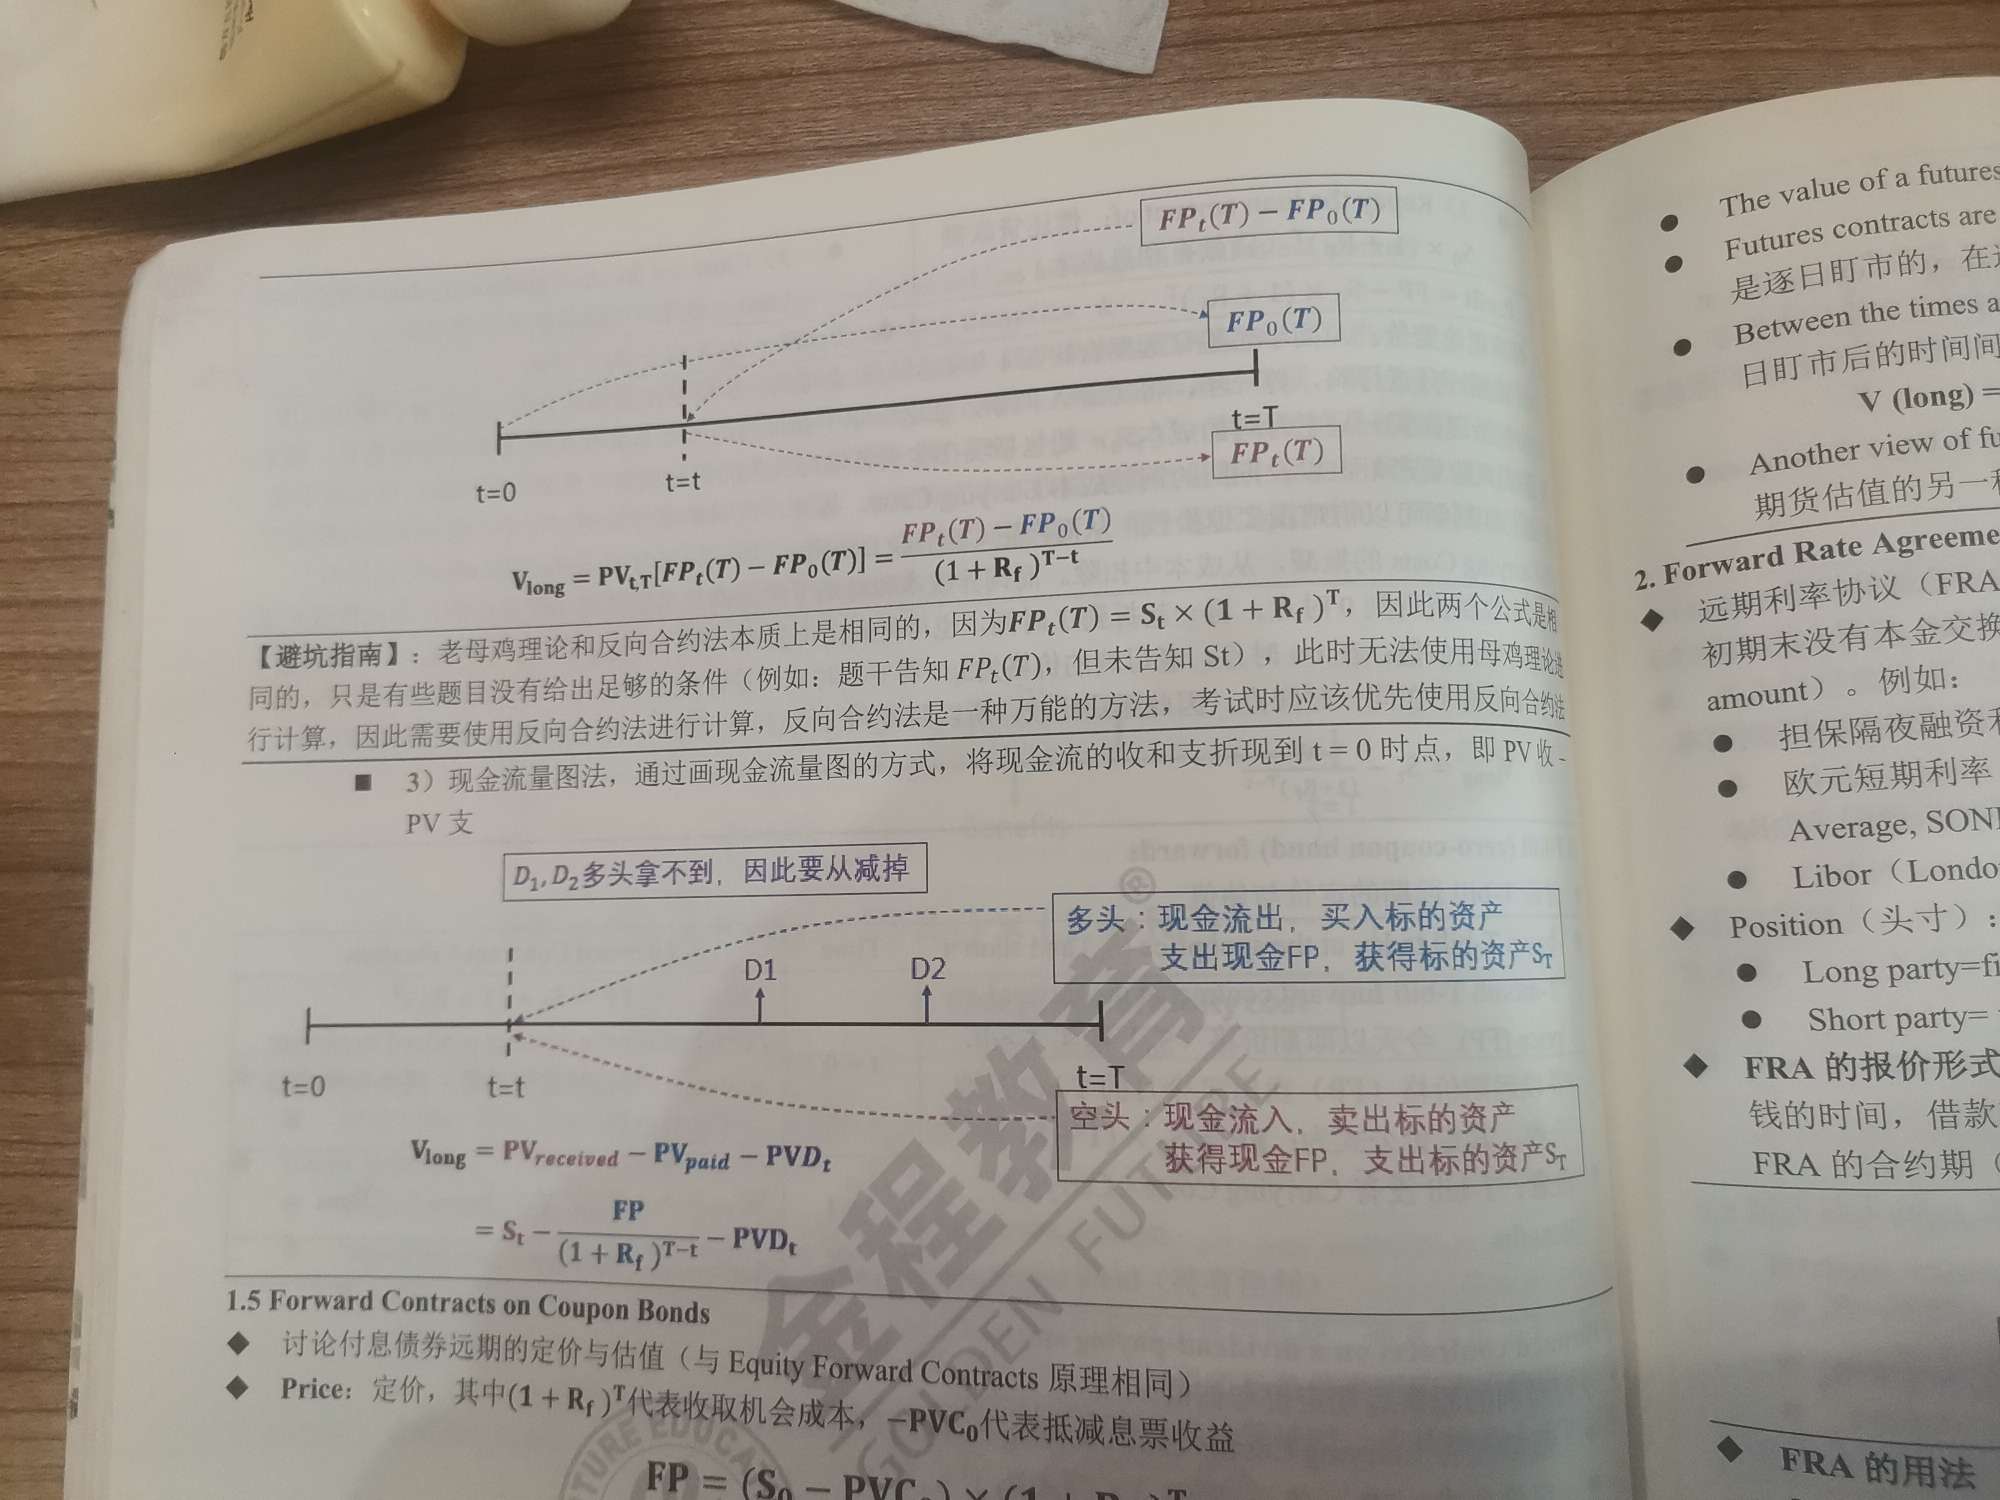 FPₜ(T) − FP₀(T)
FP₀(T)
t=T
FPₜ(T)
t=0
t=t
V_long = PV_t,T[FPₜ(T) − FP₀(T)] = (FPₜ(T) − FP₀(T)) / (1 + R_f)^(T−t)
【避坑指南】：老母鸡理论和反向合约法本质上是相同的，因为FPₜ(T) = Sₜ × (1 + R_f)^T，因此两个公式是相
同的，只是有些题目没有给出足够的条件（例如：题干告知 FPₜ(T)，但未告知 St），此时无法使用母鸡理论进
行计算，因此需要使用反向合约法进行计算，反向合约法是一种万能的方法，考试时应该优先使用反向合约法
■ 3）现金流量图法，通过画现金流量图的方式，将现金流的收和支折现到 t = 0 时点，即 PV 收 -
PV 支
D₁, D₂多头拿不到，因此要从减掉
多头：现金流出，买入标的资产
支出现金FP，获得标的资产S_T
D1 D2
t=0 t=t t=T
空头：现金流入，卖出标的资产
获得现金FP，支出标的资产S_T
V_long = PV_received − PV_paid − PVDₜ
= Sₜ − FP / (1 + R_f)^(T−t) − PVDₜ
1.5 Forward Contracts on Coupon Bonds
◆ 讨论付息债券远期的定价与估值（与 Equity Forward Contracts 原理相同）
◆ Price：定价，其中(1 + R_f)^T代表收取机会成本，−PVC₀代表抵减息票收益
FP = (S₀ − PVC
金程教育®
GOLDEN FUTURE
● The value of a futures
● Futures contracts are
是逐日盯市的，在
● Between the times a
日盯市后的时间间
V (long) =
● Another view of fu
期货估值的另一
2. Forward Rate Agreeme
◆ 远期利率协议（FRA
初期末没有本金交换
amount）。例如：
● 担保隔夜融资利
● 欧元短期利率
Average, SONI
● Libor（Londo
◆ Position（头寸）：
● Long party=fi
● Short party=
◆ FRA 的报价形式
钱的时间，借款
FRA 的合约期（
◆ FRA 的用法